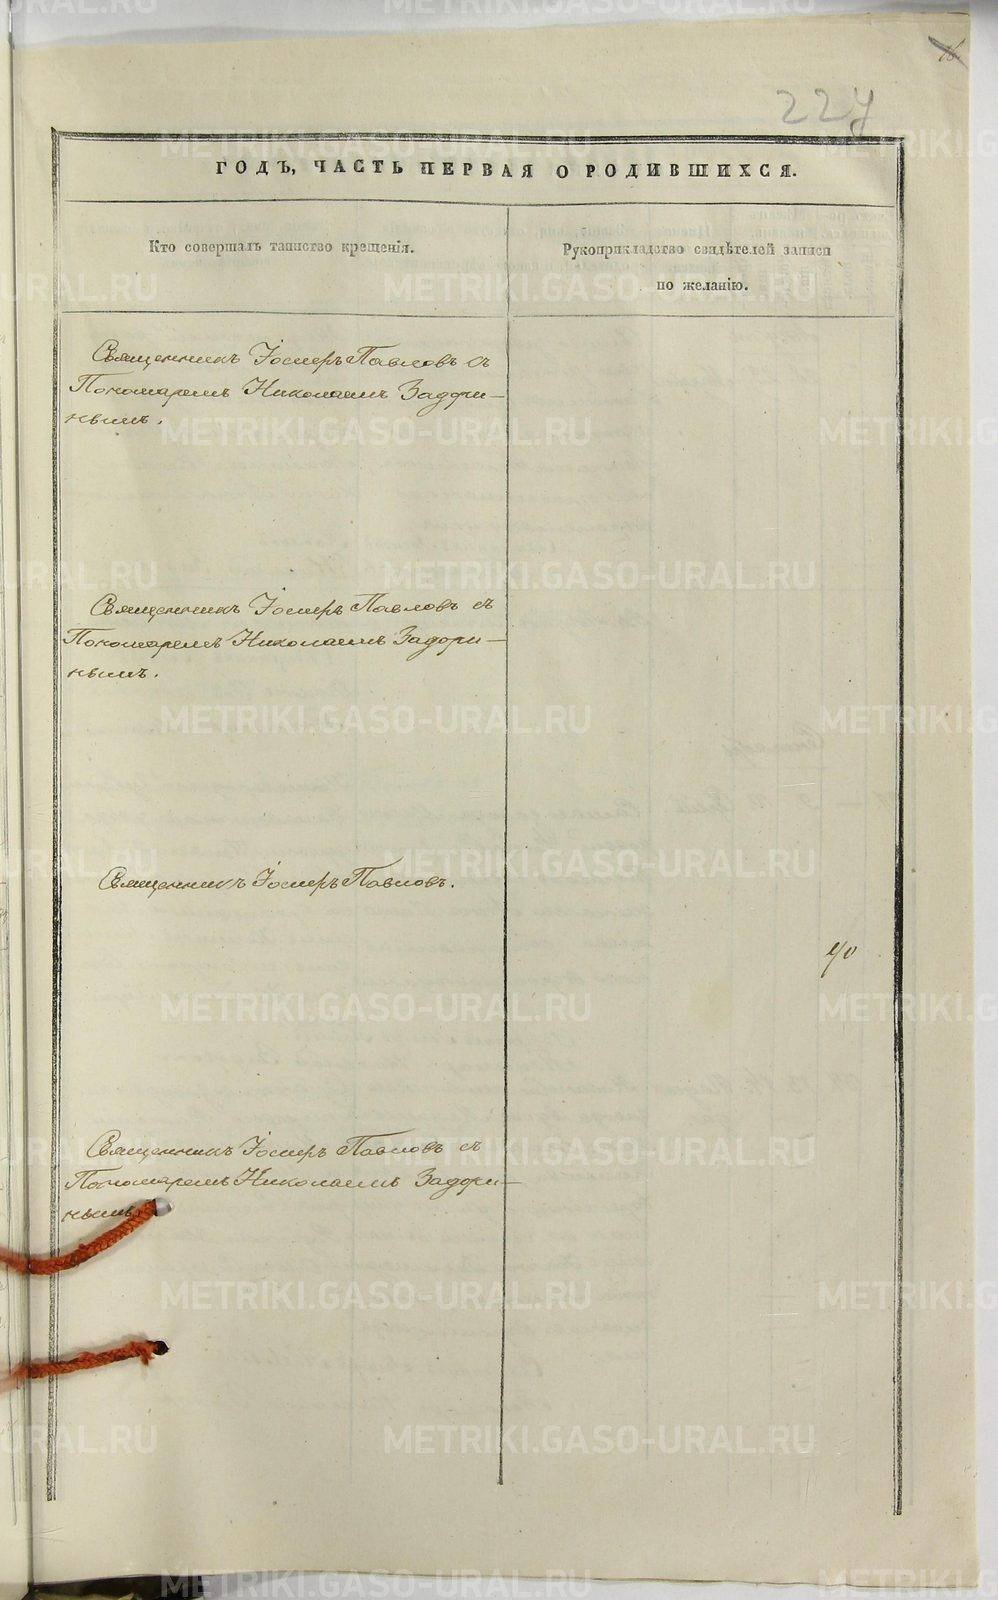 16
227
ГОДЪ, ЧАСТЬ ПЕРВАЯ О РОДИВШИХСЯ.
Кто совершалъ таинство крещенія.
Рукоприкладство свидѣтелей записи
по желанію.
Священникъ Іосифъ Павловъ съ
Пономаремъ Николаемъ Задори-
нымъ.
Священникъ Іосифъ Павловъ съ
Пономаремъ Николаемъ Задори-
нымъ.
Священникъ Іосифъ Павловъ.
Священникъ Іосифъ Павловъ съ
Пономаремъ Николаемъ Задори-
нымъ.
METRIKI.GASO-URAL.RU